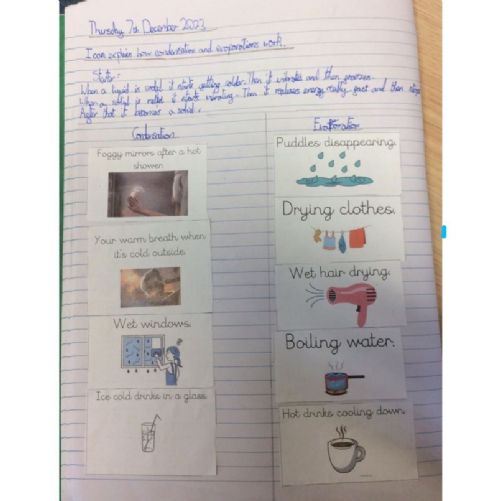 Thursday 7th December 2023
I can explain how condensation and evaporations work.
Starter:
When a liquid is cold it starts getting colder. Then it vibrates and then
When a solid is melted it starts vibrating. Then it releases energy really fast and then
After that it becomes a solid.
Condensation
Evaporation
Foggy mirrors after a hot
shower.
Your warm breath when
it's cold outside.
Wet windows.
Ice cold drinks in a glass.
Puddles disappearing.
Drying clothes.
Wet hair drying.
Boiling water.
Hot drinks cooling down.